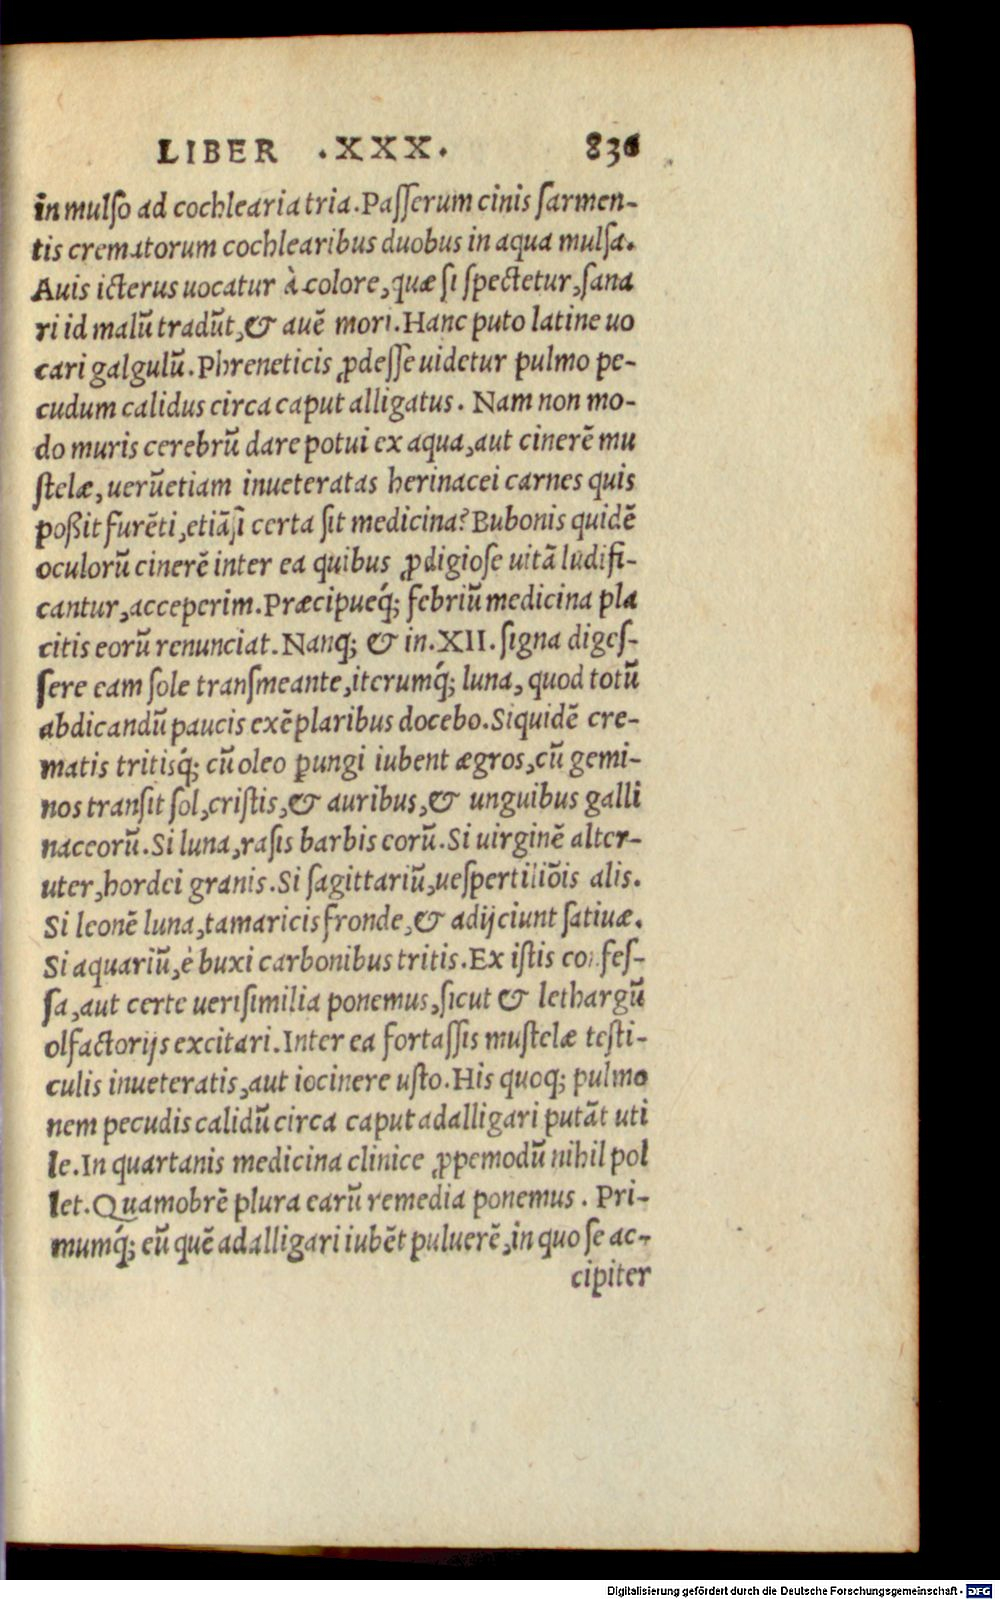 LIBER .XXX. 836
in mulſo ad cochlearia tria. Paſſerum cinis ſarmen-
tis crematorum cochlearibus duobus in aqua mulſa.
Auis icterus uocatur à colore, quæ ſi ſpectetur, ſana
ri id malū tradūt, & auē mori. Hanc puto latine uo
cari galgulū. Phreneticis ꝓdeſſe uidetur pulmo pe-
cudum calidus circa caput alligatus. Nam non mo-
do muris cerebrū dare potui ex aqua, aut cinerē mu
ſtelæ, uerūetiam inueteratas herinacei carnes quis
poßit furēti, etiāſi certa ſit medicina? Bubonis quidē
oculorū cinerē inter ea quibus ꝓdigioſe uitā ludifi-
cantur, acceperim. Præcipueq́; febriū medicina pla
citis eorū renunciat. Nanq; & in .XII. ſigna digeſ-
ſere eam ſole tranſmeante, iterumq́; luna, quod totū
abdicandū paucis exēplaribus docebo. Siquidē cre-
matis tritisq́; cū oleo ꝑungi iubent ægros, cū gemi-
nos tranſit ſol, criſtis, & auribus, & unguibus galli
naceorū. Si luna, raſis barbis eorū. Si uirginē alter-
uter, hordei granis. Si ſagittariū, ueſpertiliōis alis.
Si leonē luna, tamaricis fronde, & adijciunt ſatiuæ.
Si aquariū, è buxi carbonibus tritis. Ex iſtis confeſ-
ſa, aut certe ueriſimilia ponemus, ſicut & lethargū
olfactorijs excitari. Inter ea fortaſſis muſtelæ teſti-
culis inueteratis, aut iocinere uſto. His quoq; pulmo
nem pecudis calidū circa caput adalligari putāt uti
le. In quartanis medicina clinice ꝓpemodū nihil pol
let. Quamobrē plura earū remedia ponemus. Pri-
mumq́; eū quē adalligari iubēt puluerē, in quo ſe ac-
cipiter
Digitalisierung gefördert durch die Deutsche Forschungsgemeinschaft - DFG